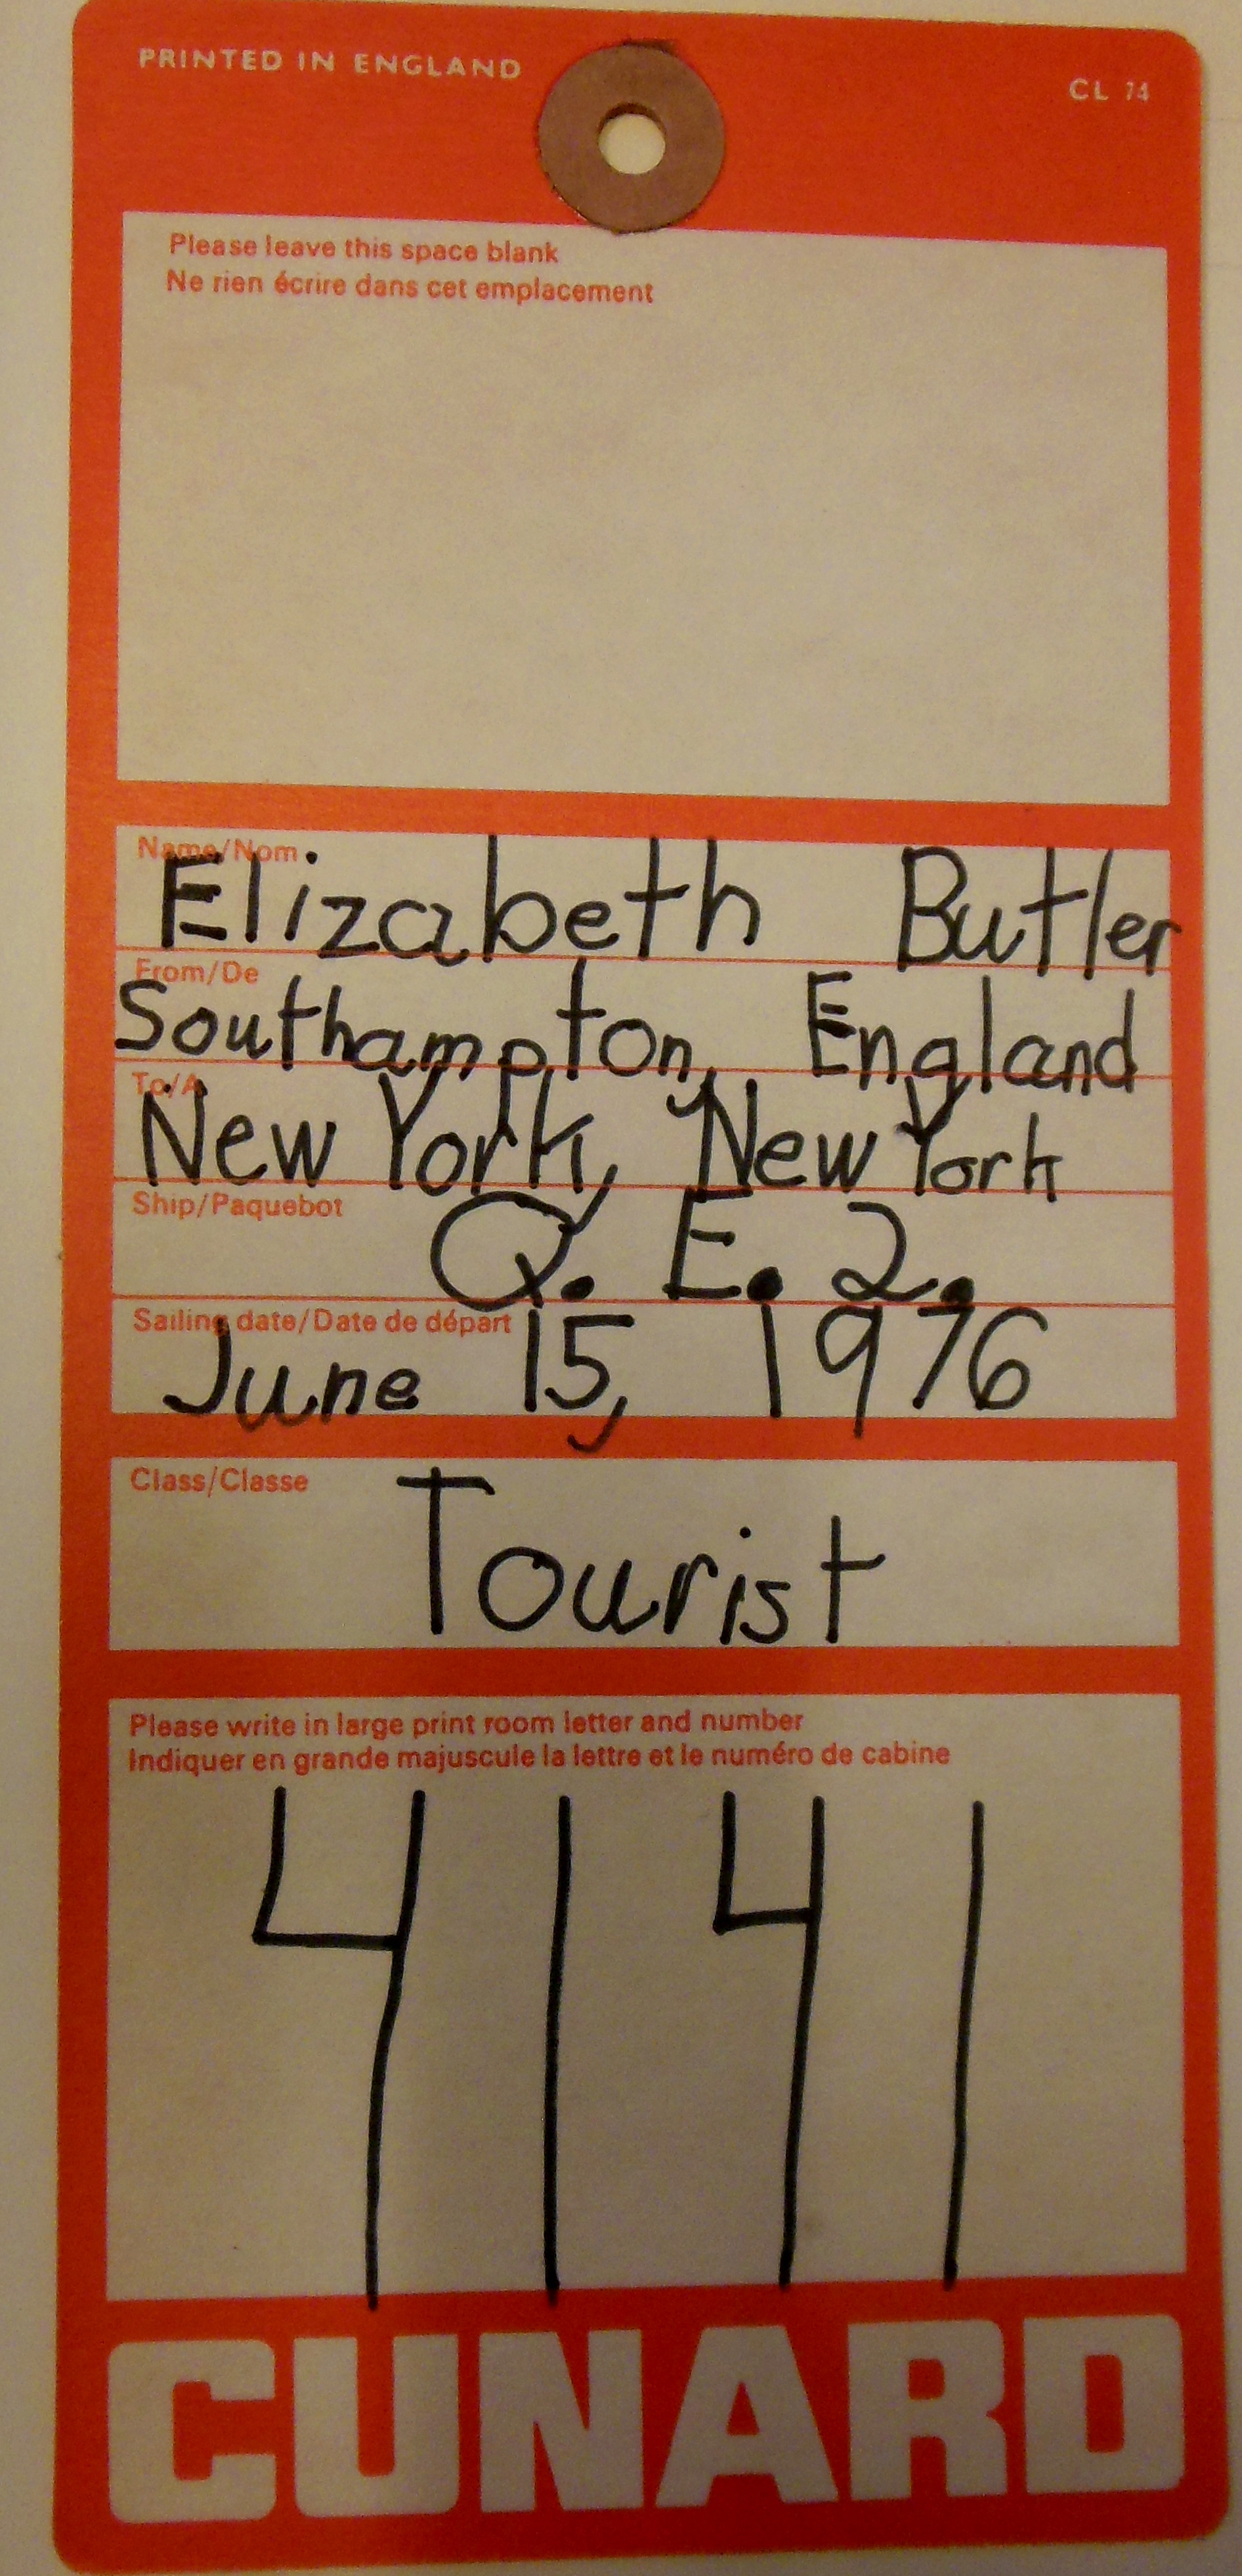 PRINTED IN ENGLAND
CL 74
Please leave this space blank
Ne rien écrire dans cet emplacement
Name/Nom
Elizabeth Butler
From/De
Southampton, England
To/A
New York, New York
Ship/Paquebot
Q. E. 2.
Sailing date/Date de départ
June 15, 1976
Class/Classe
Tourist
Please write in large print room letter and number
Indiquer en grande majuscule la lettre et le numéro de cabine
4141
CUNARD